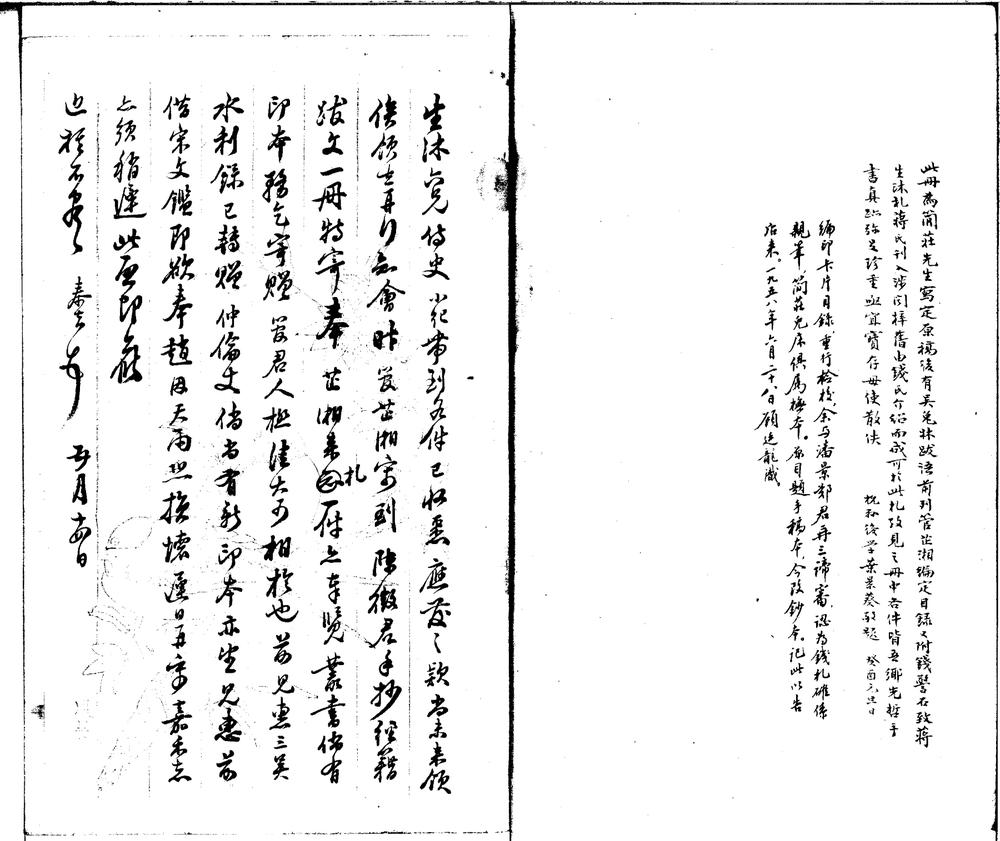 此冊為簡莊先生寫定原稿後有吳兔牀跋語前列管芷湘編定目錄又附錢警石致蔣
生沐札蔣氏刊入涉聞梓舊由錢氏介紹而成可於此札攷見之冊中各件皆吾鄉先哲手
書真跡弥足珍重亟宜寶存毋使散佚
杭縣後學葉景葵敬題 癸酉元旦日
編印卡片目錄重行檢校余与潘景鄭君再三諦審認為錢札確係
親筆簡莊兔床俱屬摹本。原目題手稿本,今改鈔本。記此以告
后來。一九五八年六月二十八日顧廷龍識。
生沐六兄侍史 小紀帶到各件已收悉應发之款尚未來領
俟領出再行知會昨管芷湘寄到陳徵君手抄經籍
跋文一冊特寄奉芷湘来札一件亦奉覽叢書倘有
印本務乞寄贈管君人極佳大可相於也前兄惠三吳
水利錄已轉贈仲倫丈倘尚有新印本亦望兄惠前
借宋文鑑即欲奉趙因天雨恐損壞遲日再寄嘉禾志
亦須稍遲此啟即候
近祺不盡 泰吉頓首 五月十四日